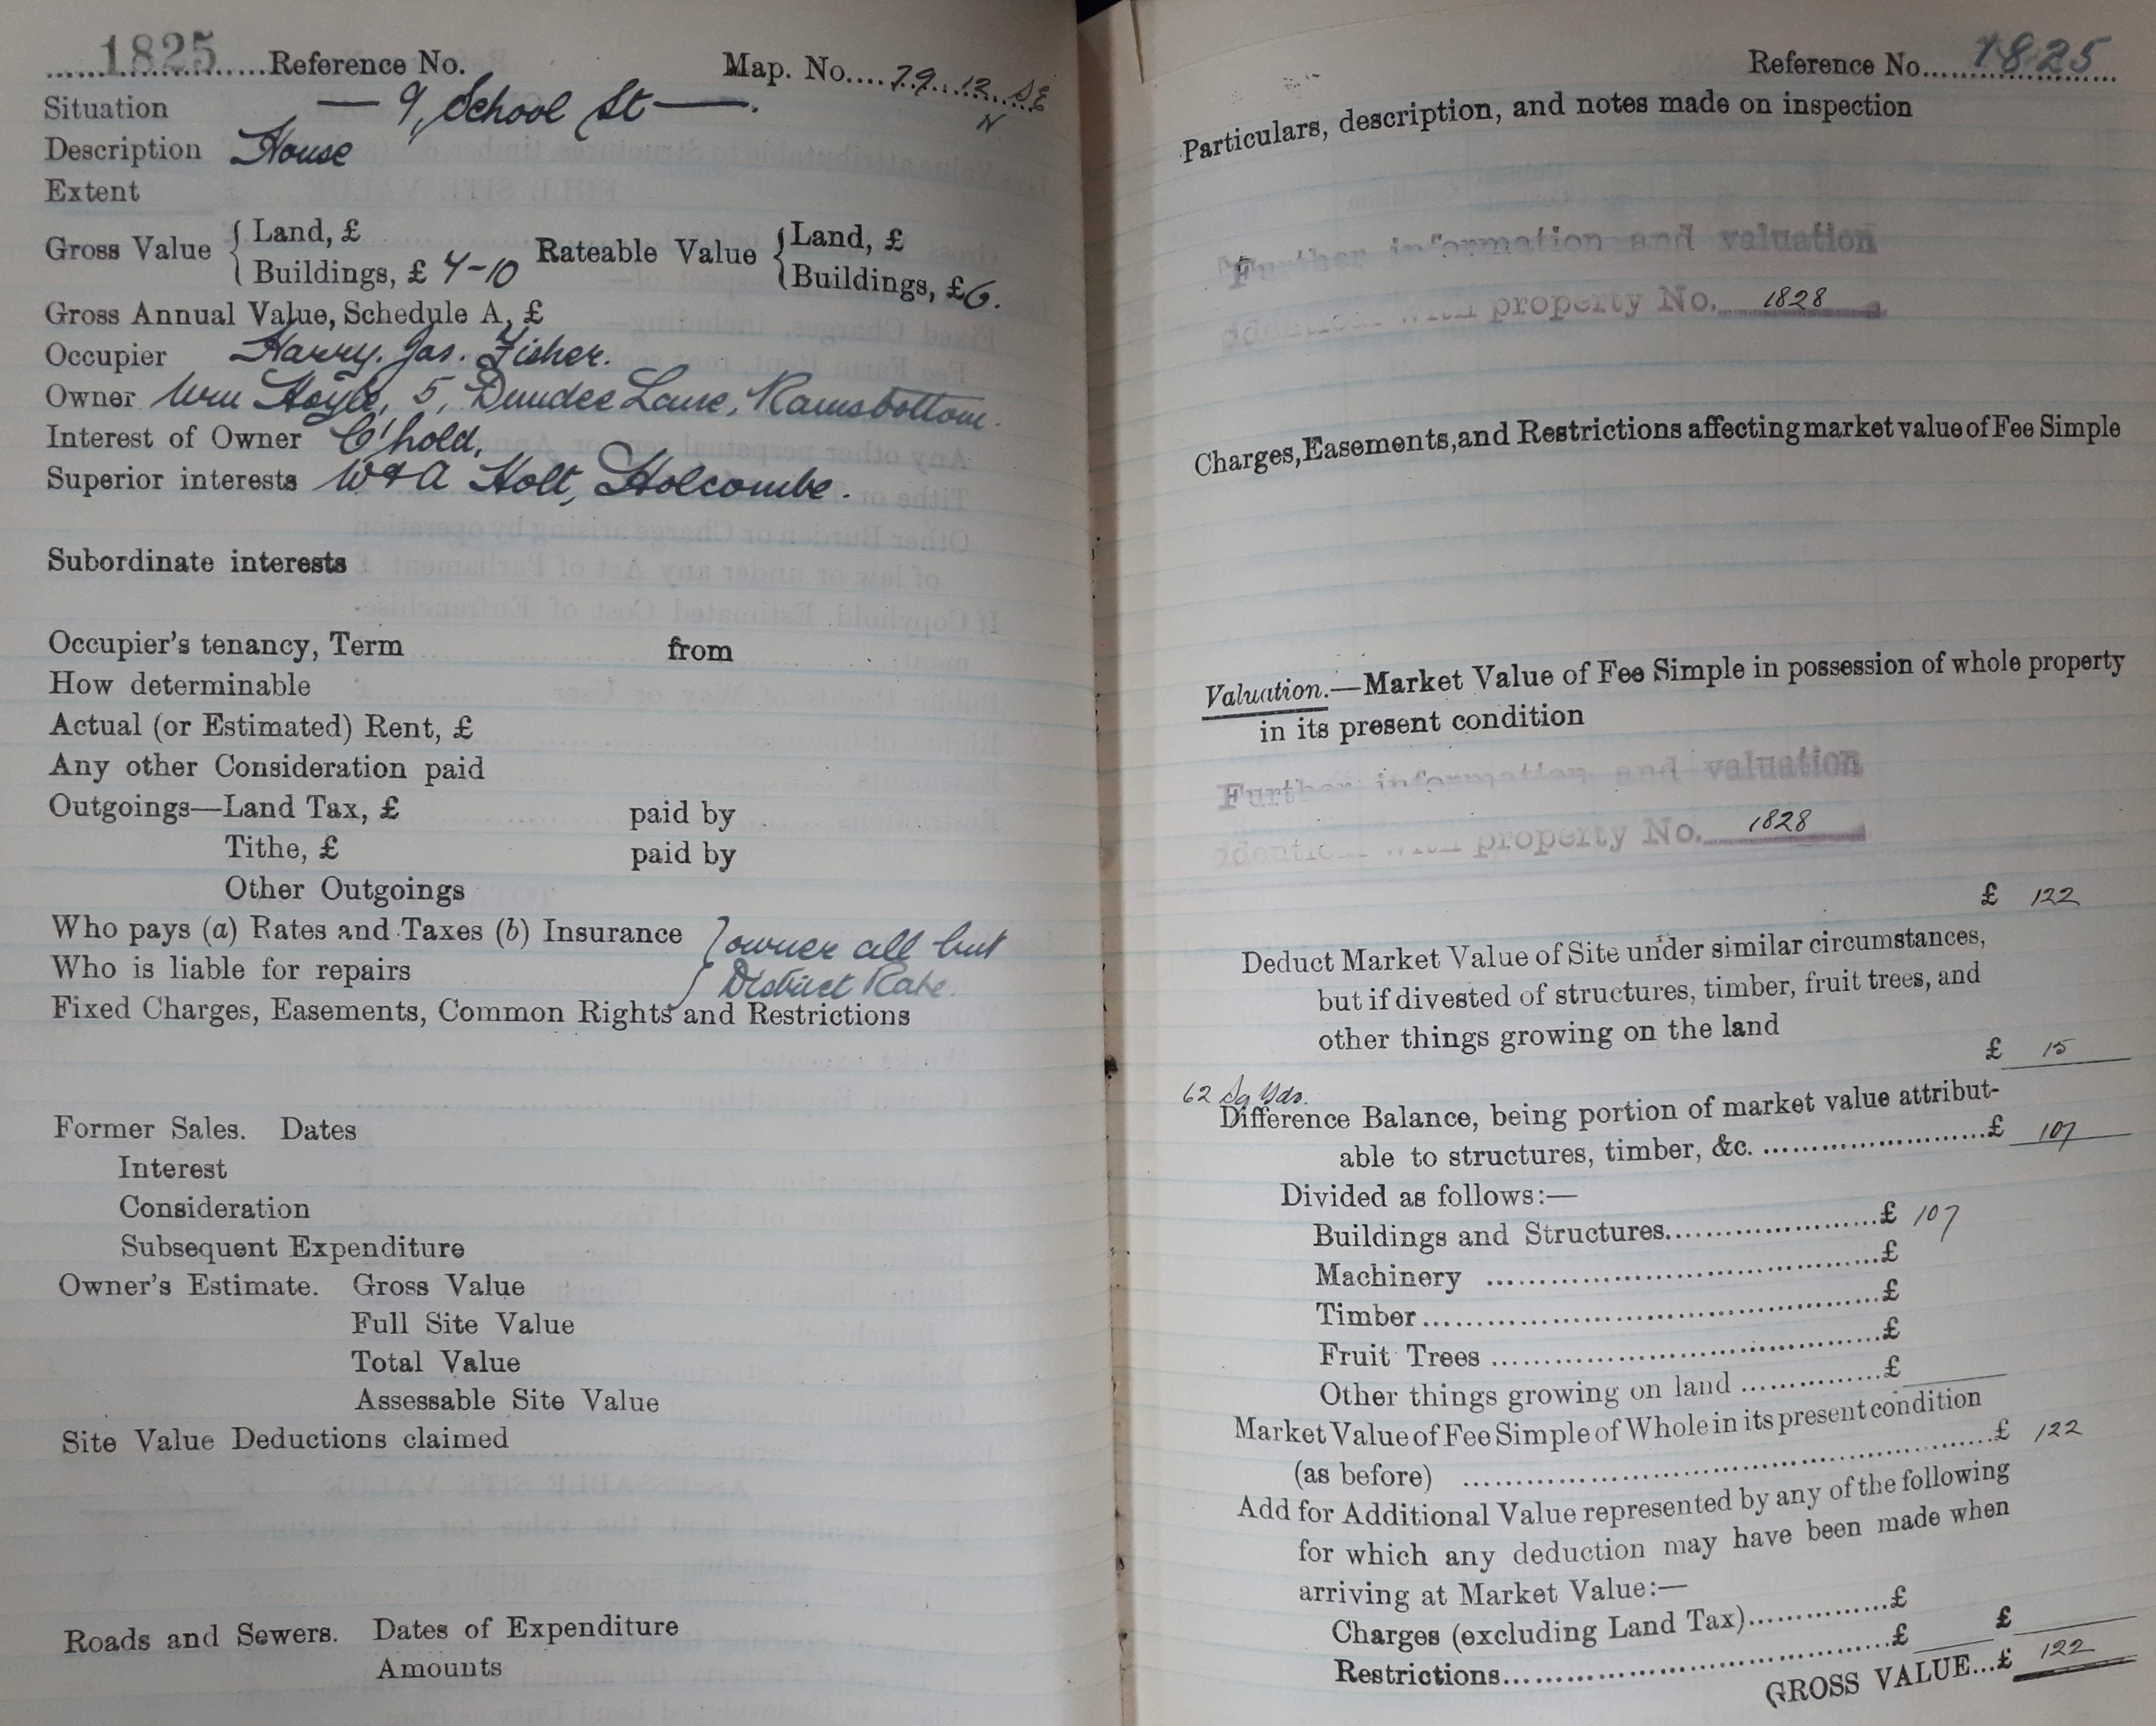 1825 Reference No. Map. No. 79.12 SE
N
Situation — 9, School St —.
Description House
Extent
Gross Value { Land, £ Rateable Value { Land, £
Buildings, £ 4-10 Buildings, £6.
Gross Annual Value, Schedule A, £
Occupier Harry. Jas. Fisher.
Owner Wm Hoyle, 5, Dundee Lane, Ramsbottom.
Interest of Owner C'hold,
Superior interests W & A Holt, Holcombe.
Subordinate interests
Occupier's tenancy, Term from
How determinable
Actual (or Estimated) Rent, £
Any other Consideration paid
Outgoings—Land Tax, £ paid by
Tithe, £ paid by
Other Outgoings
Who pays (a) Rates and Taxes (b) Insurance } owner all but
Who is liable for repairs District Rate.
Fixed Charges, Easements, Common Rights and Restrictions
Former Sales. Dates
Interest
Consideration
Subsequent Expenditure
Owner's Estimate. Gross Value
Full Site Value
Total Value
Assessable Site Value
Site Value Deductions claimed
Roads and Sewers. Dates of Expenditure
Amounts
Reference No. 1825
Particulars, description, and notes made on inspection
Further information and valuation
identical with property No. 1828
Charges, Easements, and Restrictions affecting market value of Fee Simple
Valuation.—Market Value of Fee Simple in possession of whole property
in its present condition
Further information and valuation
identical with property No. 1828
£ 122
Deduct Market Value of Site under similar circumstances,
but if divested of structures, timber, fruit trees, and
other things growing on the land
£ 15
62 Sq Yds.
Difference Balance, being portion of market value attribut-
able to structures, timber, &c. £ 107
Divided as follows:—
Buildings and Structures £ 107
Machinery £
Timber £
Fruit Trees £
Other things growing on land £
Market Value of Fee Simple of Whole in its present condition
(as before) £ 122
Add for Additional Value represented by any of the following
for which any deduction may have been made when
arriving at Market Value:—
Charges (excluding Land Tax) £
Restrictions £ £
GROSS VALUE...£ 122